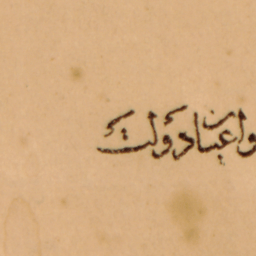 واعیان دولت